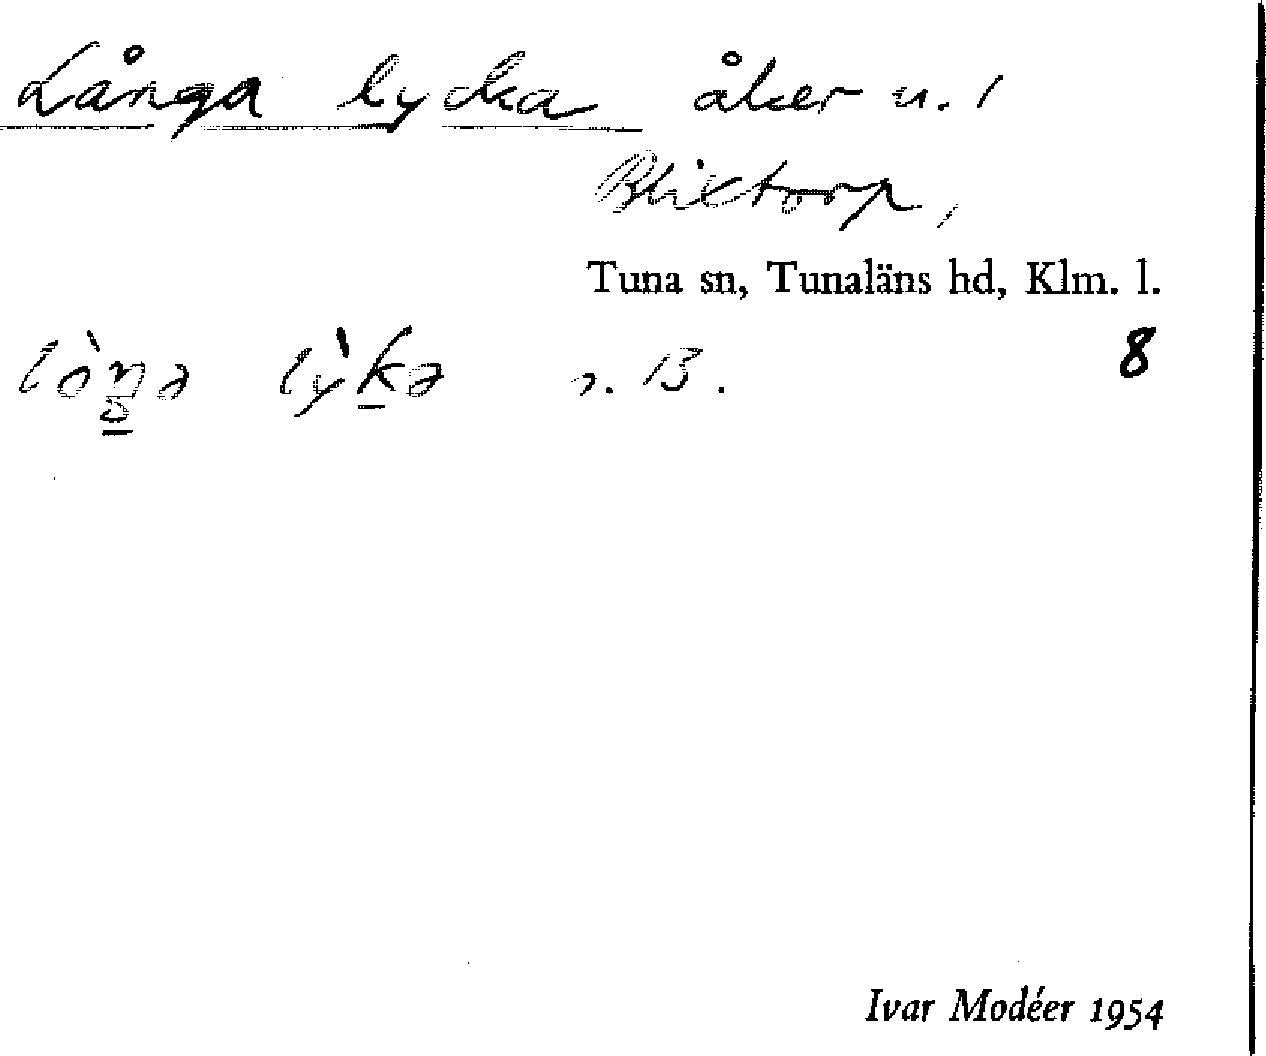 Långa lycka åker u. 1
Blixtorp,
Tuna sn, Tunaläns hd, Klm. l.
8
lòŋə lỳkə s. B.
Ivar Modéer 1954